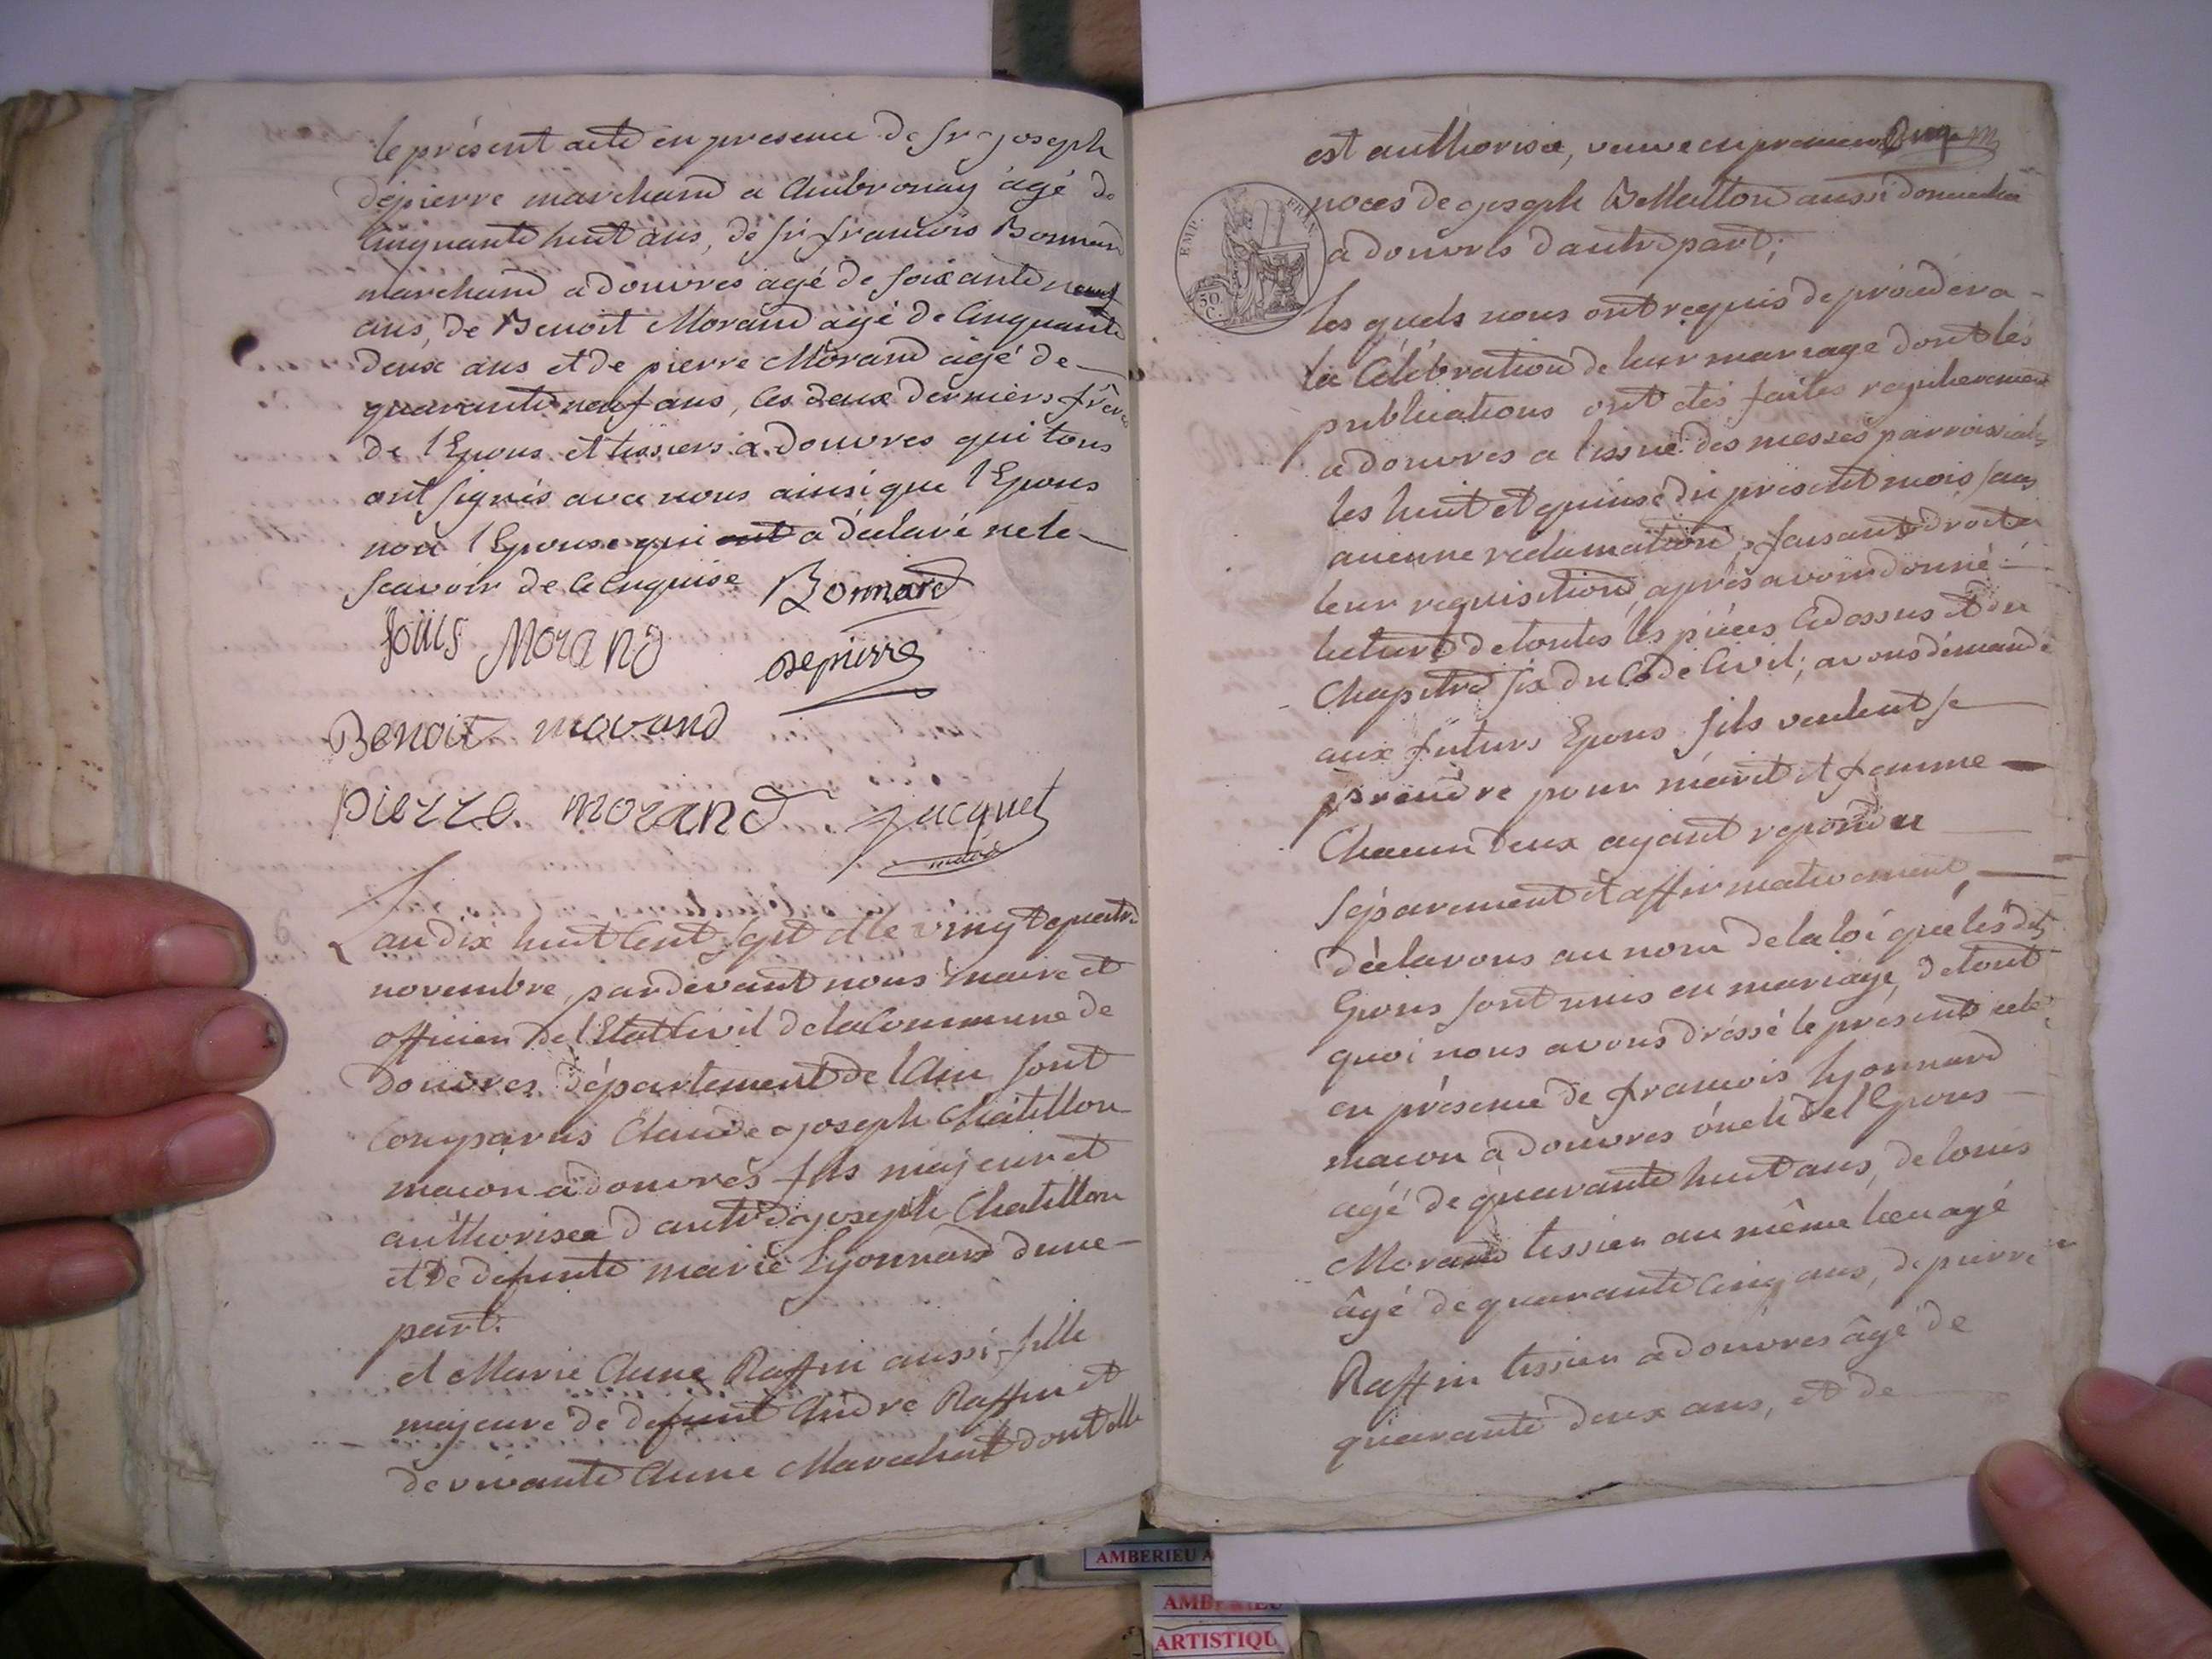 le présent acte en presence de sr joseph
dépierre marchand a Ambronay agé de
Cinquante huit ans, de sr francois Bonnard
marchand a douvres agé de soixante neuf
ans, de Benoit Morand agé de Cinquante
deux ans et de pierre Morand agé de
quarante neuf ans, les deux derniers frères
de l'Epoux et tissiers a douvres qui tous
ont signés avec nous ainsi que l'Epoux
non l'Epouse qui ont a déclaré ne le
scavoir de ce enquise Bonnard
Louis Morand depierre
Benoit morand
pierre. morand Jacquet
maire
L'an dix huit Cent sept et le vingt quatre
novembre, pardevant nous maire et
officier de l'Etat Civil de la Commune de
douvres département de l'Ain sont
Comparus Claude joseph Chatillon
macon a douvres fils majeur et
authorisée d'autre joseph Chatillon
et de defunte marie Lyonnard d'une
part.
et Marie Anne Raffin aussi fille
majeure de defunt André Raffin et
de vivante Anne Marechal dont elle
est authorisée, veuve en premiere
noces de joseph Bellatton aussi domiciliée
a douvres d'autre part;
EMP. FRAN.
50 C.
les quels nous ont requis de procéder a
la Célébration de leur mariage dont les
publications ont étés faites regulierement
a douvres a l'issue des messes parroissiales
les huit et quinse du présent mois sans
aucune reclamation, faisant droit a
leur requisition, après avoir donné
lecture de toutes les pièces Cidessus et du
Chapitre six du Code Civil; avons démandé
aux futurs Epoux s'ils veulent se
prendre pour marit et femme
Chacun deux ayant repondu
séparement et affirmativement,
déclarons au nom de la loi que lesdits
Epoux sont unis en mariage, de tout
quoi nous avons dréssé le présent acte,
en présence de francois Lyonnard
macon a douvres oncle de l'Epoux
agé de quarante huit ans, de Louis
Morand tissier au même lieu agé
âgé de quarante Cinq ans, de pierre
Raffin tissier a douvres âgé de
quarante deux ans, et de
AMBERIEU A
AMBERIEU
ARTISTIQU